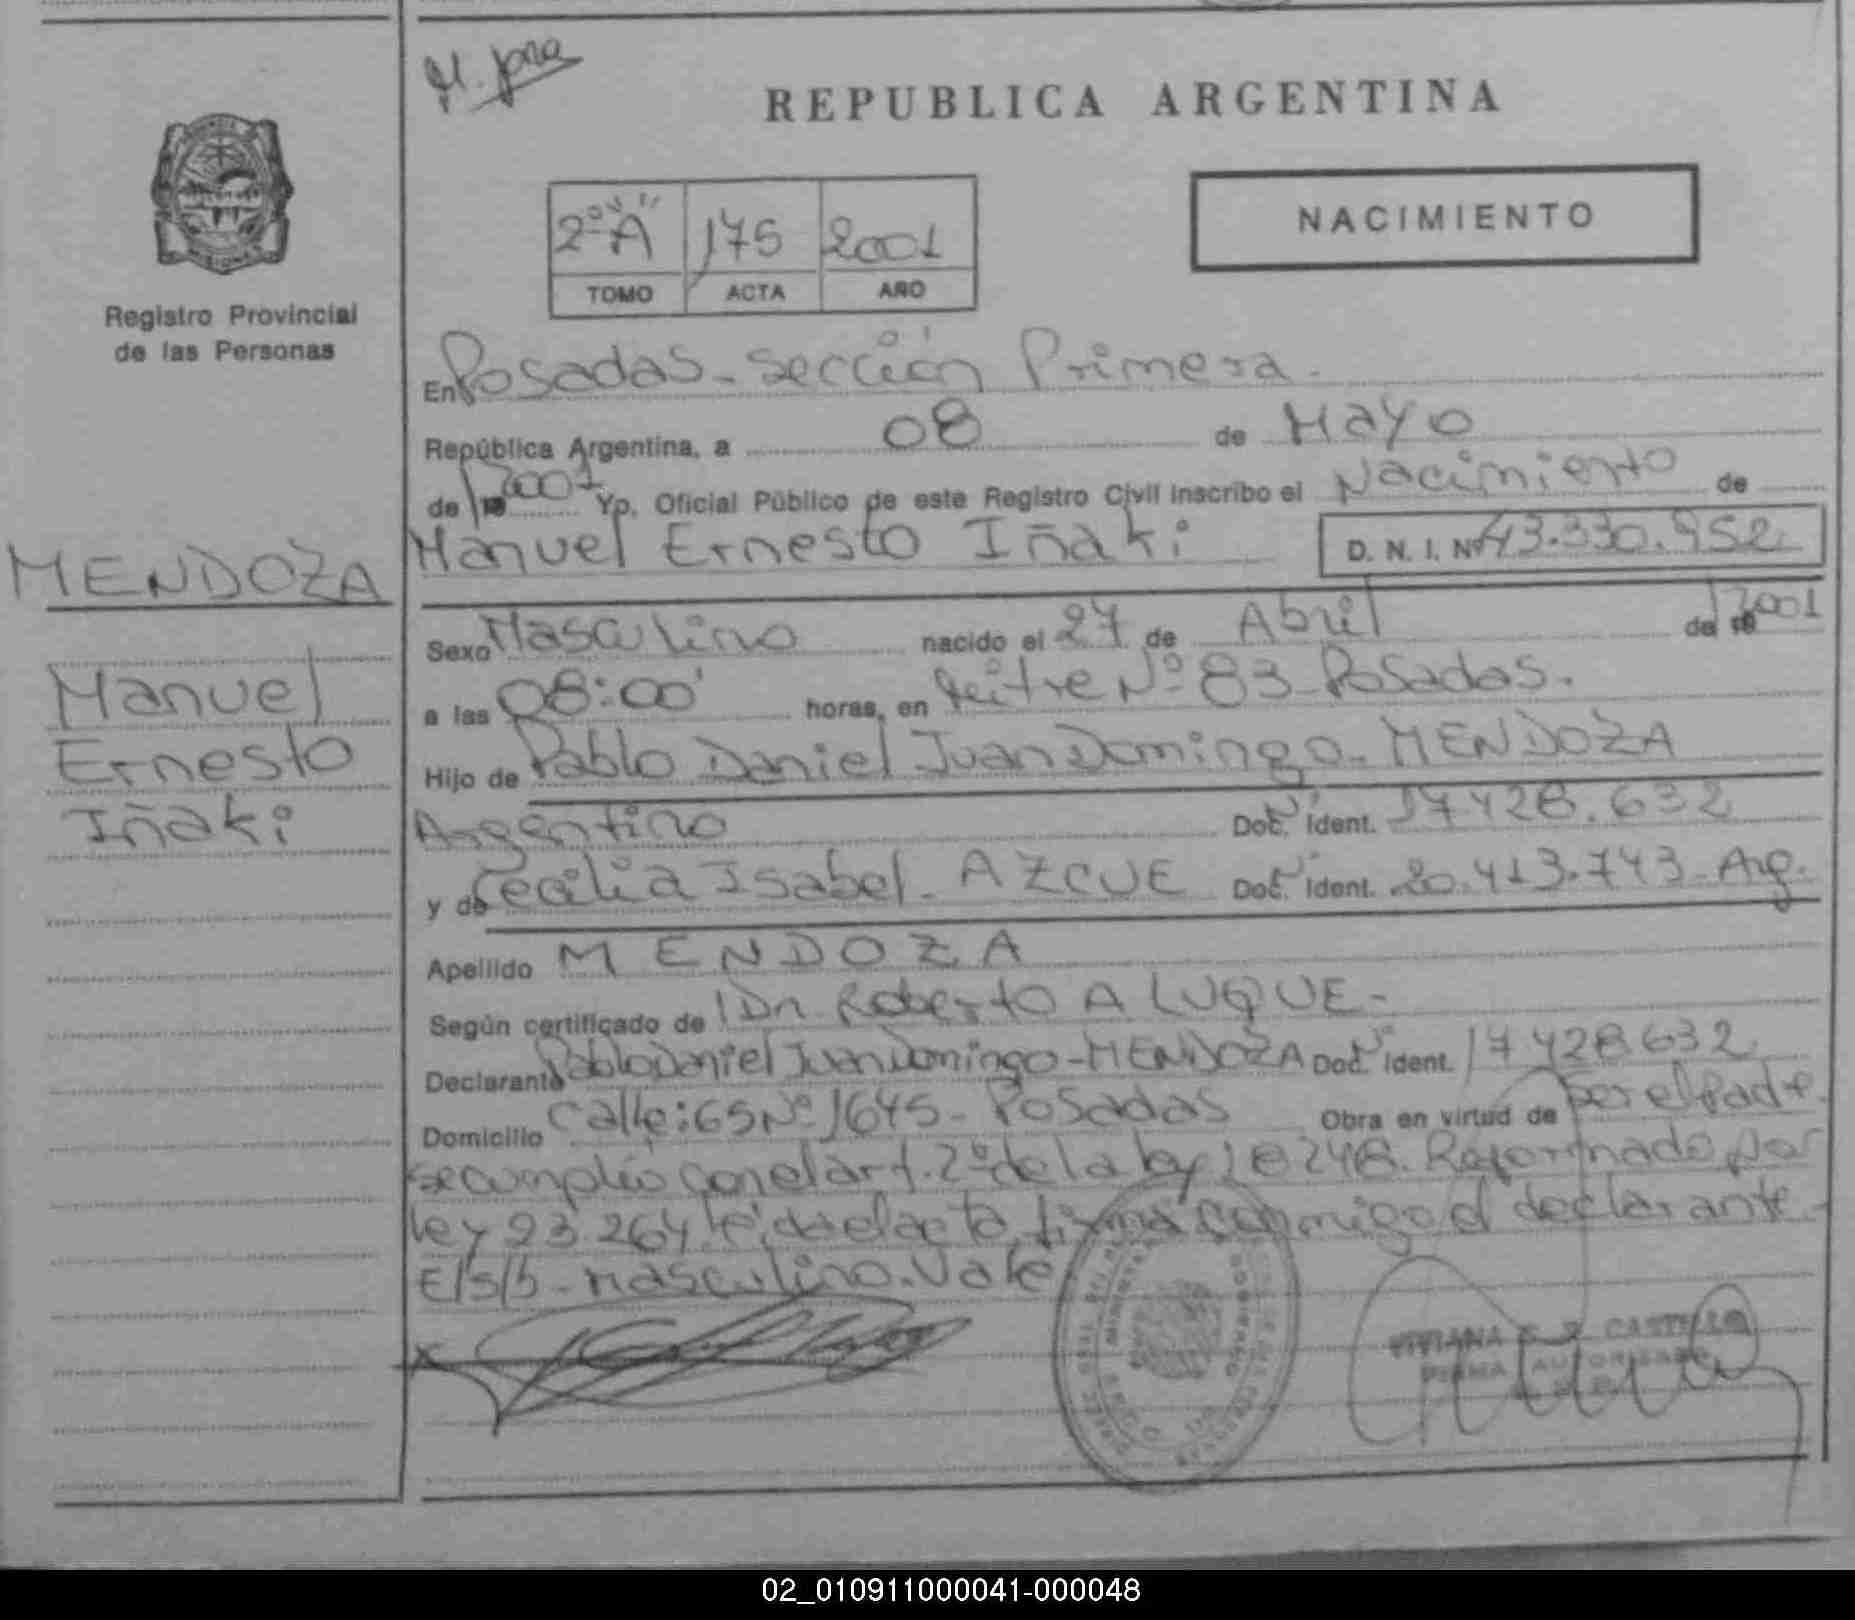 REPUBLICA ARGENTINA
NACIMIENTO
2º "A" 175 2001
TOMO ACTA AÑO
Registro Provincial
de las Personas
En Posadas - Sección Primera.
República Argentina, a 08 de Mayo
de 2001 Yo, Oficial Público de este Registro Civil inscribo el Nacimiento de
Manuel Ernesto Iñaki D. N. I. Nº 43.330.952
MENDOZA
Manuel
Ernesto
Iñaki
Sexo Masculino nacido el 27 de Abril de 2001
a las 08:00' horas, en Mitre Nº 83 Posadas.
Hijo de Pablo Daniel Juan Domingo - MENDOZA
Argentino Doc. Nº Ident. 17.428.632
y de Cecilia Isabel - AZCUE Doc. Nº Ident. 20.413.743 - Arg.
Apellido MENDOZA
Según certificado de Dr. Roberto A LUQUE -
Declarante Pablo Daniel Juan Domingo - MENDOZA Doc. Nº Ident. 17.428.632
Domicilio Calle: 65 Nº 1645 - Posadas Obra en virtud de Ser el Padre.
se cumplió con el art. 2º de la ley 18248. Reformado por
ley 23.264 leída el acta, firma conmigo el declarante -
E/S/b - Masculino. Vale
VIVIANA CASTILLO
FIRMA AUTORIZADA
02_010911000041-000048